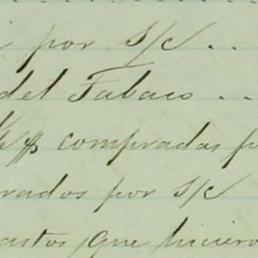 por S/C ...
del Tabaco ...
compradas p
rados por S/C
astos que hiciero